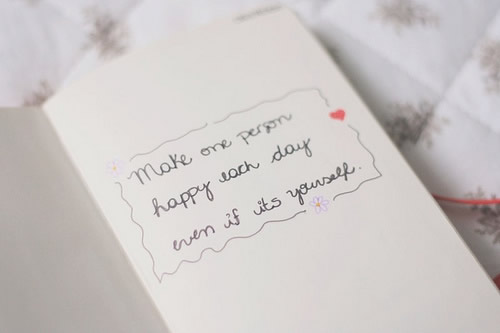 Make one person
happy each day
even if its yourself.